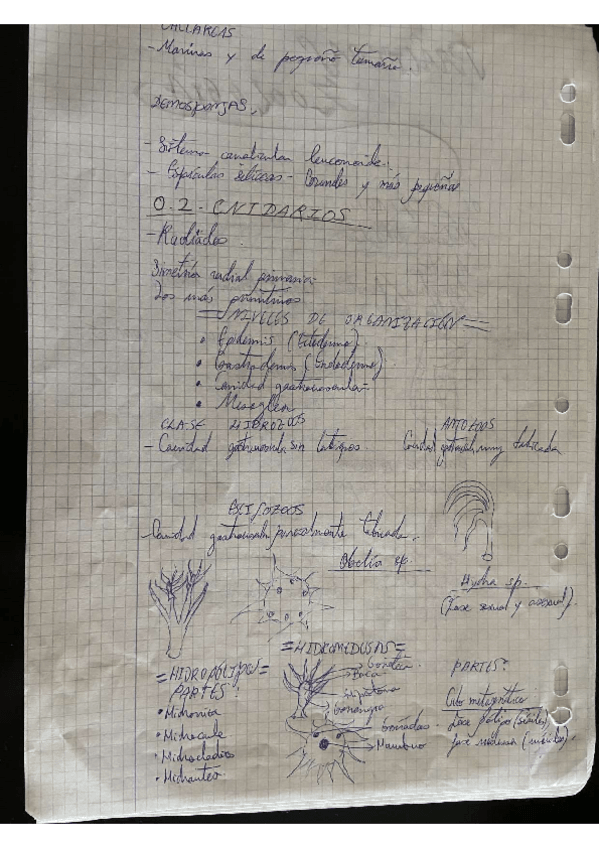 CALCAREAS
- Marinas y de pequeño tamaño.
DEMOSPONJAS.
- Sistema leuconoide.
- Espículas silíceas - Grandes y más pequeñas
0.2 - CNIDARIOS
- Radiados.
Simetría radial primaria.
Los más primitivos.
NIVELES DE ORGANIZACIÓN
• Epidermis (Ectodermo).
• Gastrodermis (Endodermo)
• Cavidad gastrovascular.
• Mesoglea
CLASE HIDROZOOS
- Cavidad gastrovascular sin tabiques.
ANTOZOOS
Cavidad muy tabicada
ESCIFOZOOS
- Cavidad gastrovascular parcialmente tabicada.
Obelia sp.
Hydra sp.
(Fase sexual y asexual).
= HIDROPÓLIPO =
PARTES:
• Hidrorriza
• Hidrocaule
• Hidrocladios
• Hidranteo
= HIDROMEDUSAS =
Boca
Gonangio
Gónadas.
Manubrio
PARTES:
Ciclo metagenético
fase pólipo (sésiles)
fase medusa (móviles).